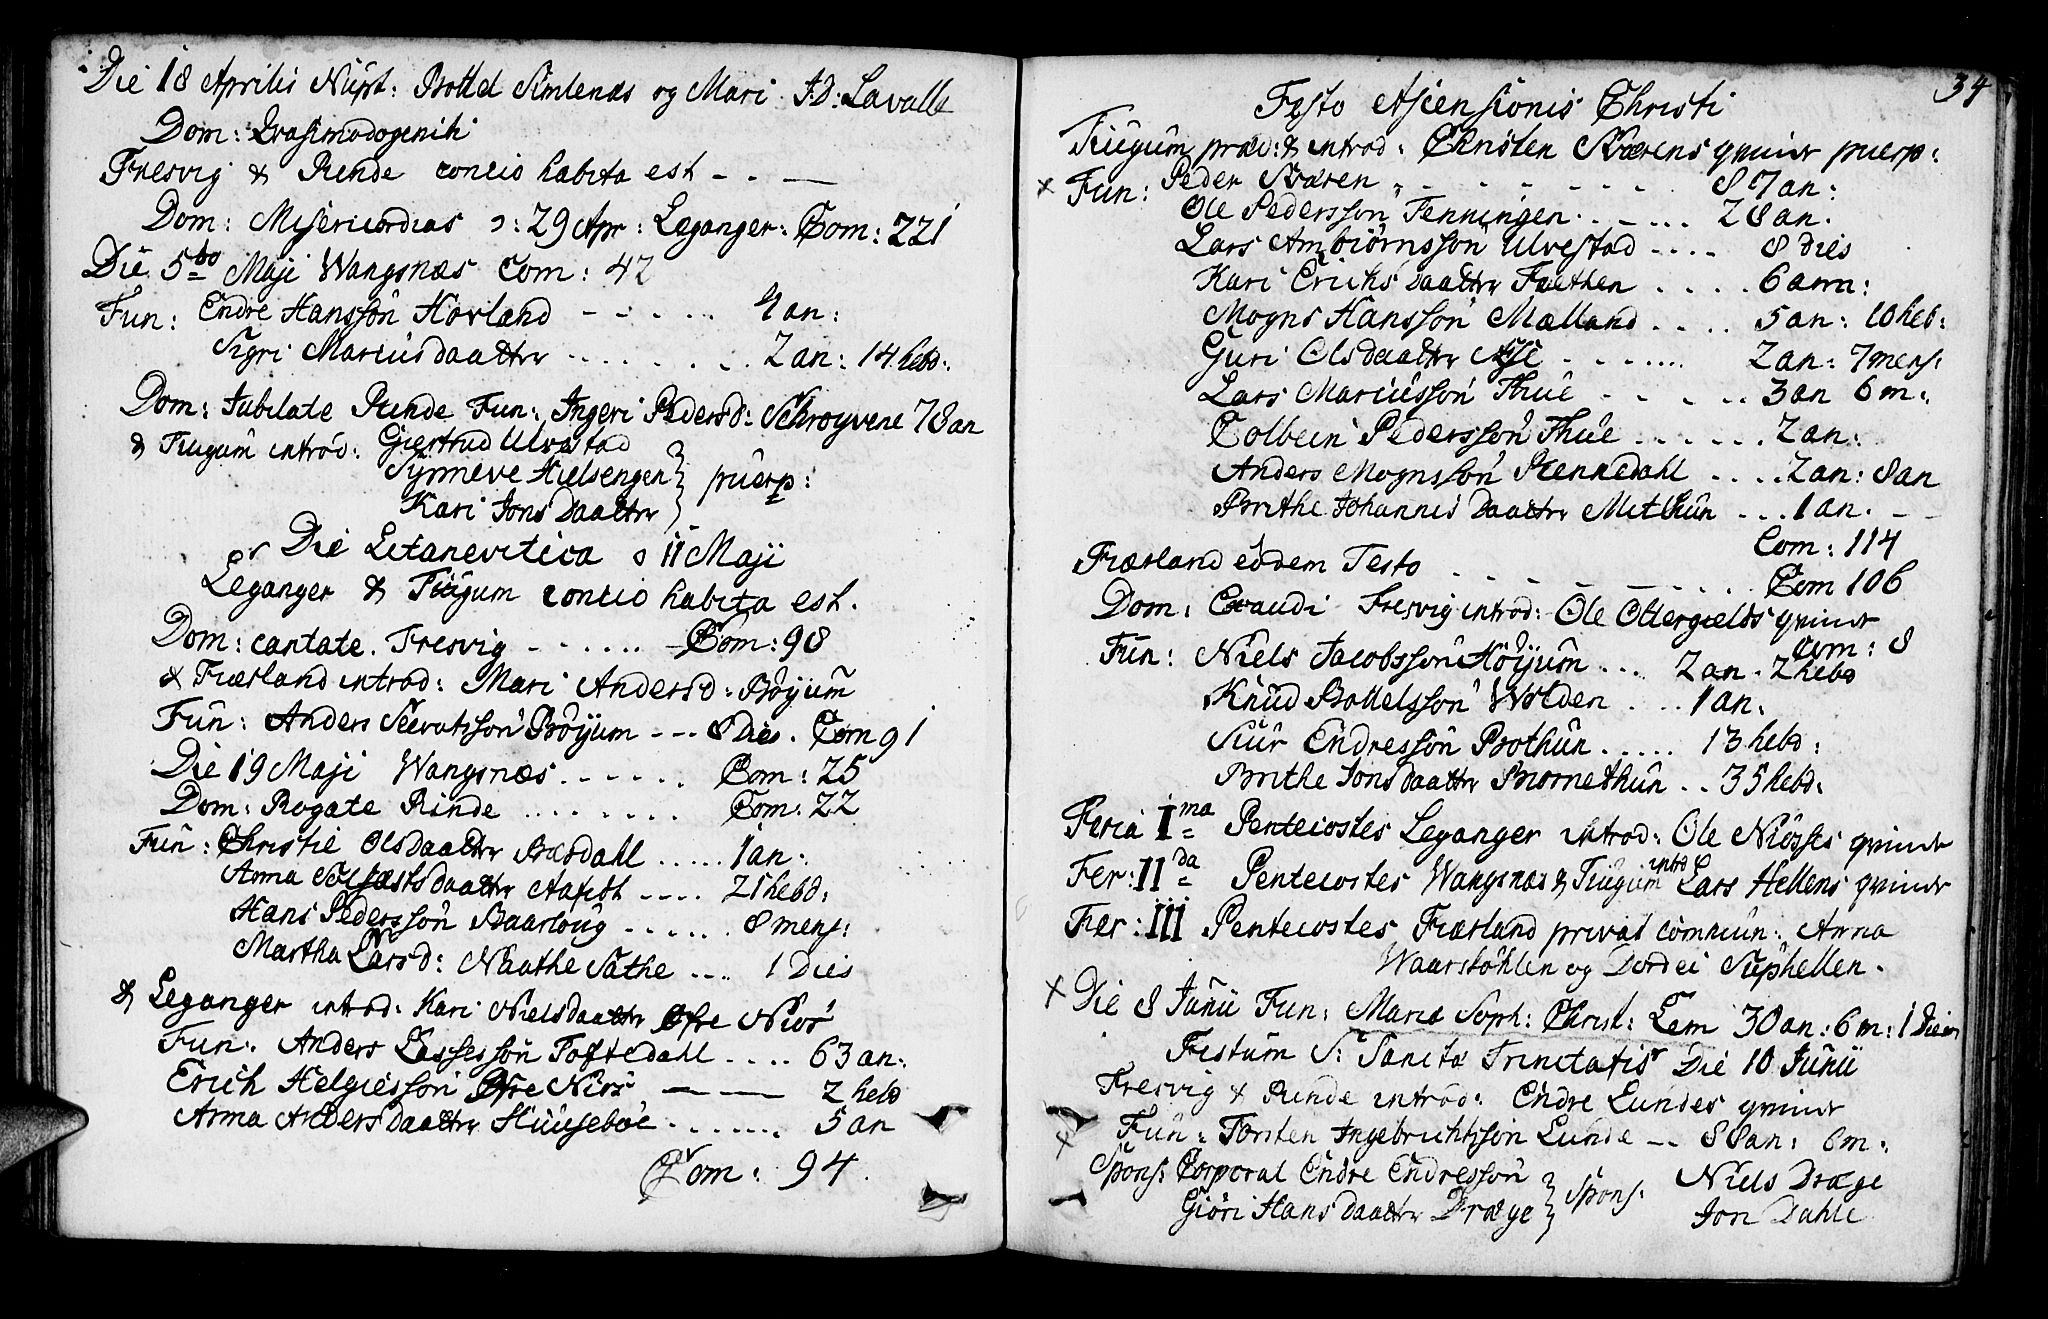 Die 18 Aprilis Nupt: Bottel Simlenæs og Mari J.D: Lavalle
Dom: Qvasimodogeniti
Fresvig & Rinde concio habita est - - —
Dom: Misericordias ɔ: 29 Apr: Leganger: Com: 221
Die 5to Maji Wangsnæs Com: 42
Fun: Endre Hansson Hovland - - - - - 4 an:
Sigri Mariusdaatter . . . . . . . 2 an: 14 hebd:
Dom: Jubilate Rinde Fun: Ingeri Pedersd: Schrøyvene 78 an
& Tiugum introd: Giertrud Ulvestad
Synneve Hielsengen } puerp:
Kari Jons Daatter
Die Letanevitica ɔ 11 Maji
Leganger & Tiugum concio habita est.
Dom: cantate. Fresvig - - - - . . . - Com: 98
& Fiærland introd: Mari Andersd: Bøyum
Fun: Anders Siovatsson Bøyum - - - 8 Dies. Com 91
Die 19 Maji Wangsnæs . . - - - - Com: 25
Dom: Rogate Rinde . . . . . . . . Com: 22
Fun: Christie Olsdaatter Bærdahl . . . . . 1 an:
Anna daatter . . . . 21 hebd:
Hans Pedersson Baarloug . . . . . . 8 mens:
Martha Larsd: Naathe Sathe . . . . 1 Dies
& Leganger introd: Kari Nielsdaatter Øfre Niøs
Fun: Anders Lassesson Toftedahl . . . . 63 an:
Erich Helgiesson Øfre Niøs — — — 2 hebd
Anna Andersdaatter Huusebøe . . . . . . . 5 an
Com: 94.
34
Festo Ascensionis Christi
Tiugum præd: & introd: Christen Kværens qvinde puerp:
x Fun: Peder Kværen . - - - - - - 87 an:
Ole Pedersson Fenningen . . - . . . 28 an.
Lars Ambiörnsson Ulvestad . . . . 8 dies
Kari Erichs Daatter Faethen . . . . . 6 ann:
Mogns Hansson Mælland . . . . 5 an: 10 heb:
Guri Olsdaatter Aase . - - . . . . 2 an: 7 mens:
Lars Mariusson Thue - . . . . . 3 an 6 m:
Colbein Pedersson Thue . . . . . . 2 an:
Anders Mognsson Rennedahl . . . . 2 an: 8 an
Brithe Johannis Daatter Methun . . . 1 an. - -
Com: 114
Fiærland eodem Festo . - - - - — - - . . . Com 106
Dom: Exaudi Fresvig introd: Ole Ottergields qvinde
Com: 8
Fun: Niels Jacobsson Høyum . . . 2 an. 2 hebd
Knud Bottelsson Wolden . . . . 1 an.
Siur Endresson Bothun . . . . . 13 hebd:
Brithe Jonsdaatter Biørnethun . . 35 hebd:
Feria Ima Pentecostes Leganger introd: Ole Niøsses qvinde
Fer: IIda Pentecostes Wangsnæs & Tiugum introd Lars Hellens qvinde
Fer: III Pentecostes Fiærland privat commun: Anna
Waarstøhlen og Dordei Suphellen.
x Die 8 Junii Fun: Maria Soph: Christ: Lem 30 an: 6 m: 1 Diem
Festum S: Sanctæ Trinitatis Die 10 Junii
Fresvig & Rinde introd: Endre Lundes qvinde
x Fun: Torsten Ingebrichtsson Lunde — 88 an: 6 m:
Spons: Corporal Endre Endresson } Spons: Niels Dræge
Giøri Hansdaatter Dræge } Jon Dahle